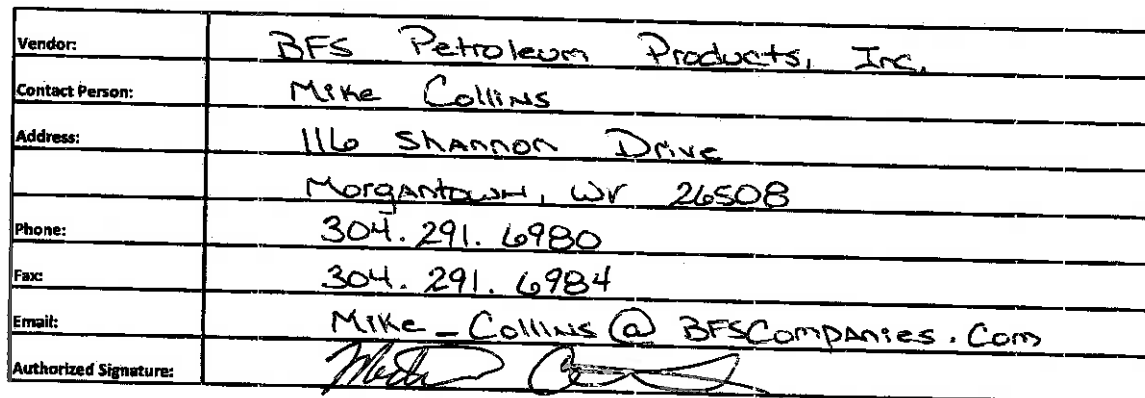 Vendor: BFS Petroleum Products, Inc.
Contact Person: Mike Collins
Address: 116 Shannon Drive
Morgantown, WV 26508
Phone: 304.291.6980
Fax: 304.291.6984
Email: Mike_Collins@BFSCompanies.Com
Authorized Signature: